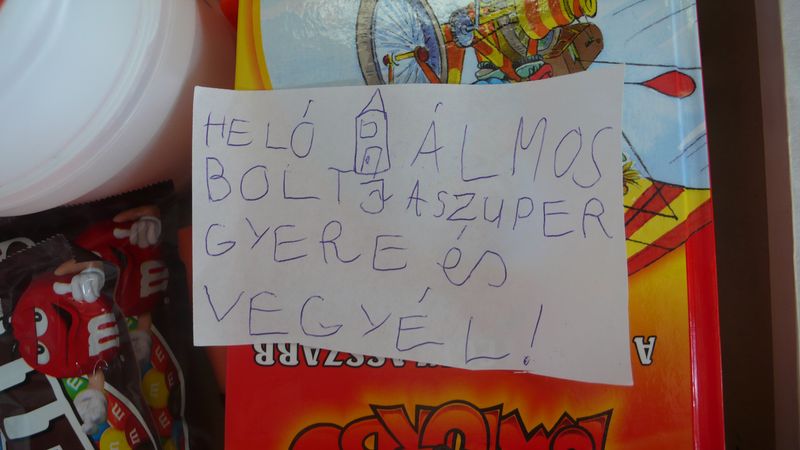 HELÓ ÁLMOS
BOLTJA SZUPER
GYERE éS
VEGYÉL!
m
m
m